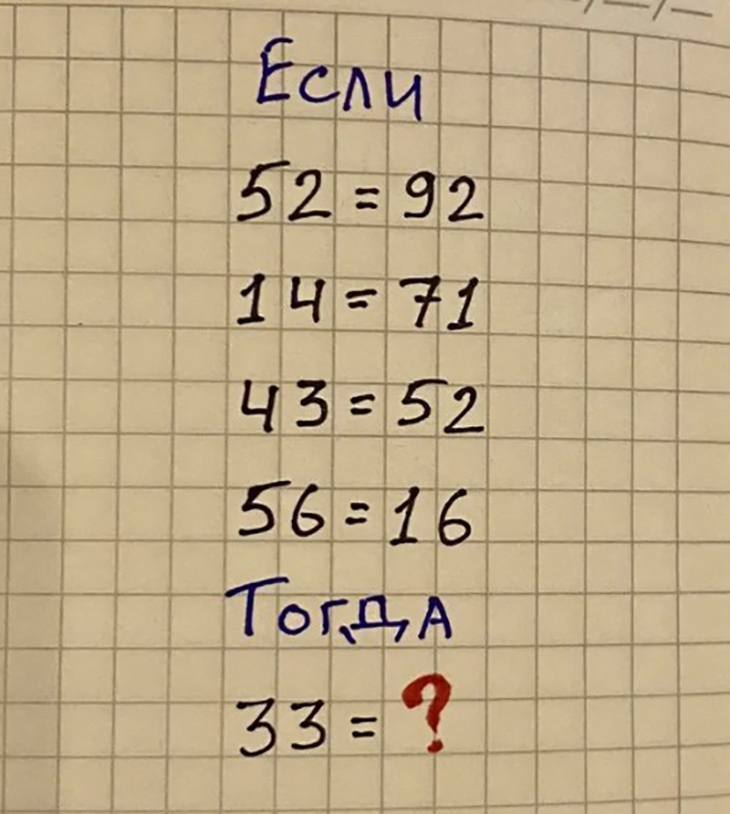 Если
52 = 92
14 = 71
43 = 52
56 = 16
Тогда
33 = ?